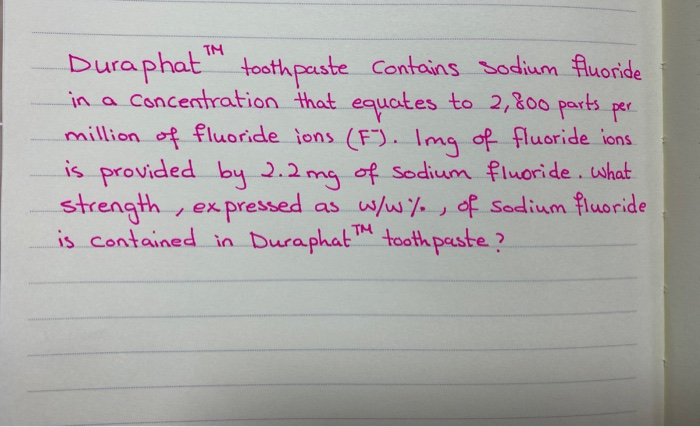 Duraphat™ toothpaste contains sodium fluoride
in a concentration that equates to 2,800 parts per
million of fluoride ions (F⁻). 1mg of fluoride ions
is provided by 2.2mg of sodium fluoride. What
strength, expressed as w/w%, of sodium fluoride
is contained in Duraphat™ toothpaste?